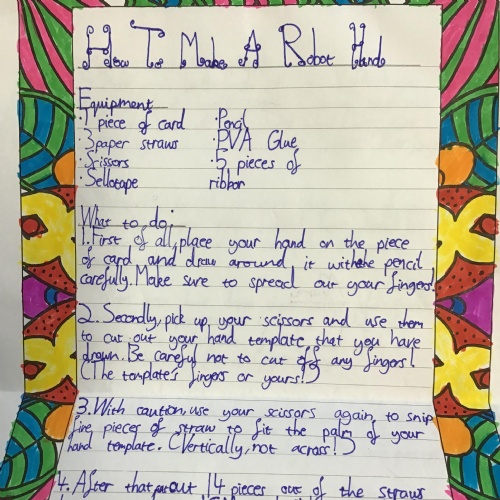 How To Make A Robot Hand
Equipment
·1 piece of card ·Pencil
·3 paper straws ·PVA Glue
·Scissors ·5 pieces of
·Sellotape ribbon
What to do:
1.First of all, place your hand on the piece
of card and draw around it with the pencil
carefully. Make sure to spread out your fingers!
2. Secondly, pick up your scissors and use them
to cut out your hand template, that you have
drawn. Be careful not to cut off any fingers!
(The template's fingers or yours!)
3.With caution, use your scissors again, to snip
five pieces of straw to fit the palm of your
hand template. (Vertically, not across!)
4. After that, out 14 pieces out of the straws